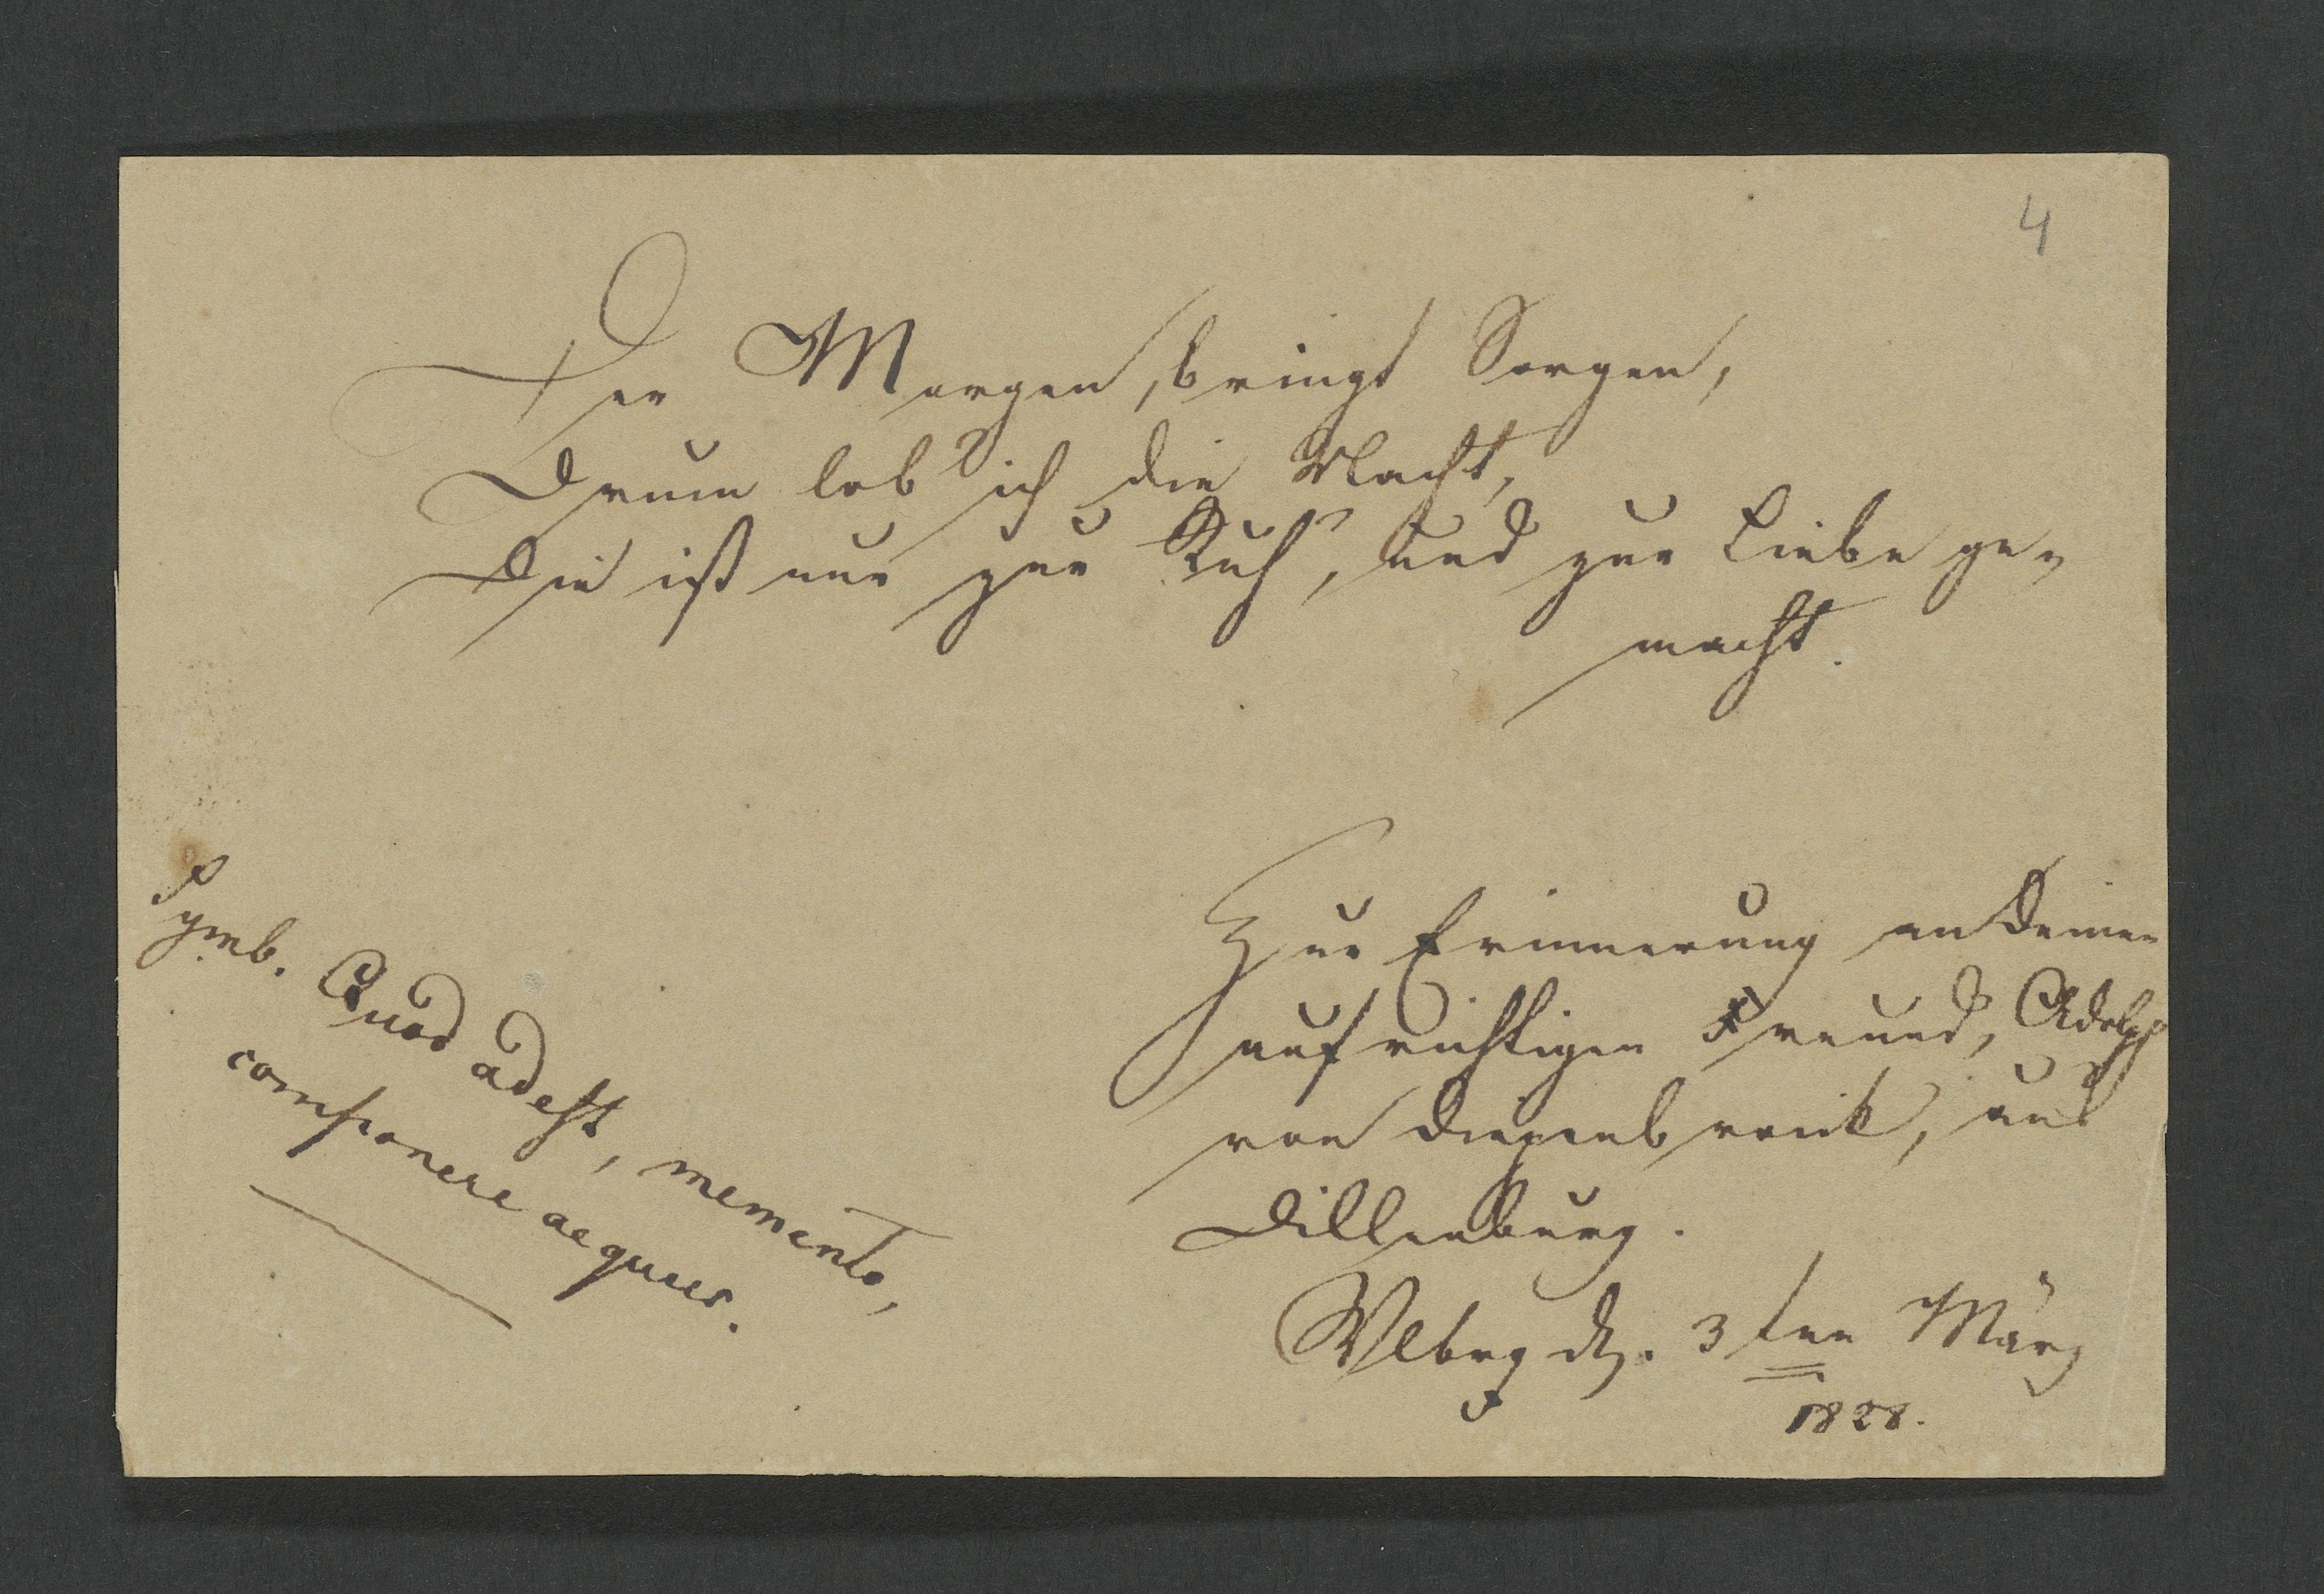 4
Der Morgen, bringt Sorgen,
Drum lob' ich die Nacht,
Die ist nur zur Ruh', und zur Liebe ge-
macht.
Symb. Quod adest, memento,
componere aequus.
Zur Erinnerung an Deinen
aufrichtigen Freund, Adolph
von aus
Dillenburg.
Wlbrg d. 3ten März
1828.